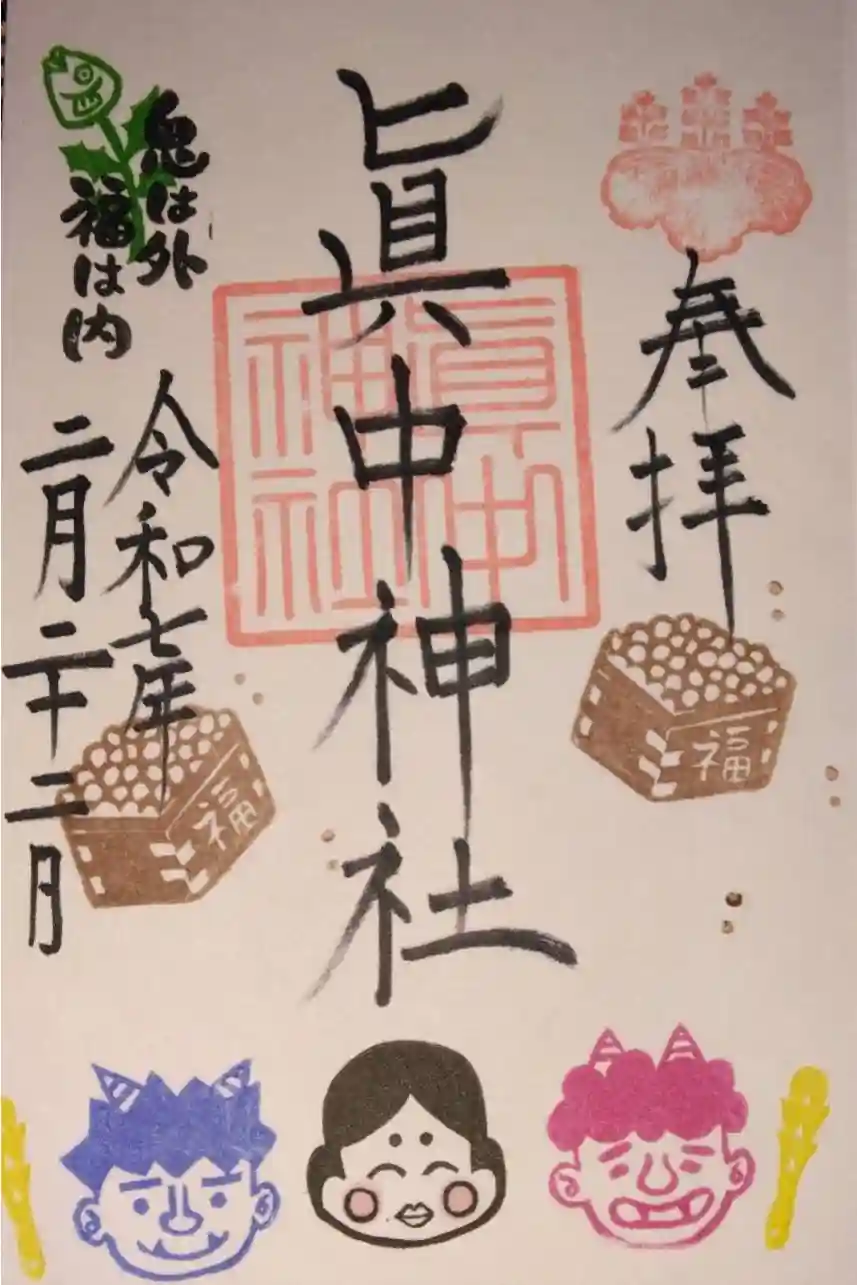 奉拝
福
眞中神社
眞中
神社
鬼は外
福は内
令和七年
二月二十二月
福